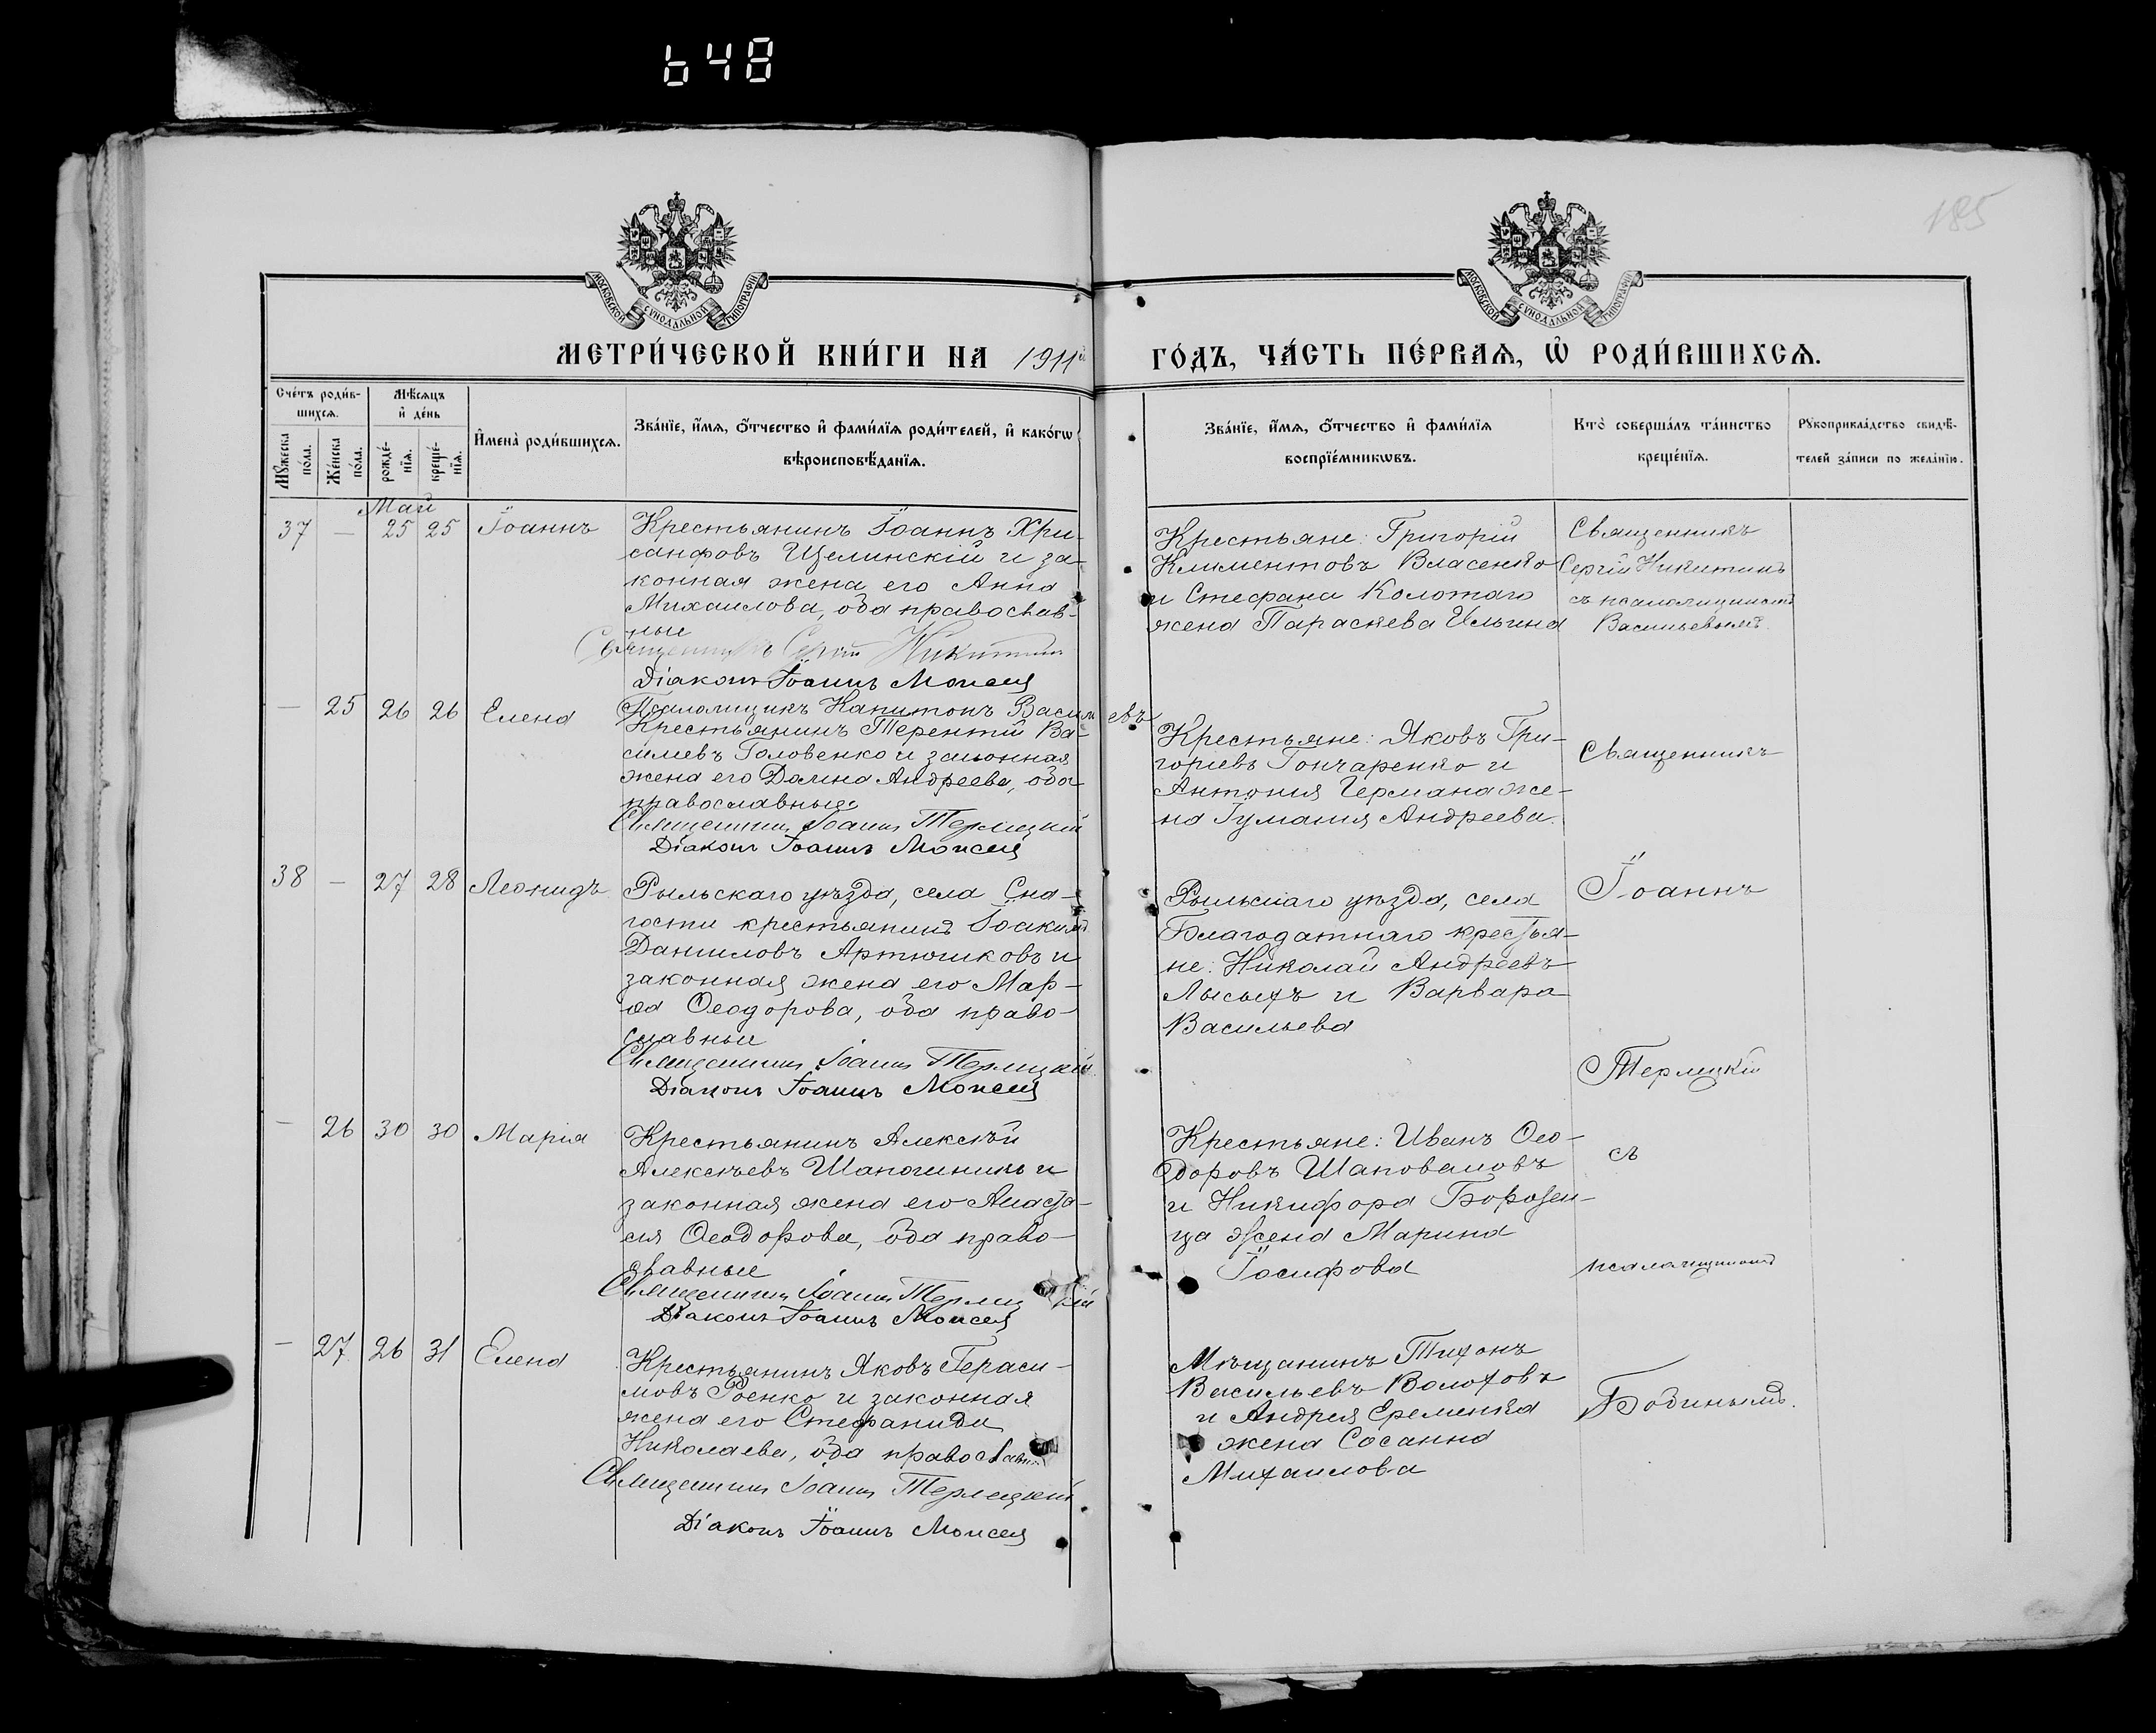 648
185
МОСКОВСКОЙ СУНОДАЛЬНОЙ ТИПОГРАФІИ
МОСКОВСКОЙ СУНОДАЛЬНОЙ ТИПОГРАФІИ
МЕТРИ́ЧЕСКОЙ КНИ́ГИ НА 1911й ГО́ДЪ, ЧА́СТЬ ПЕ́РВАѦ, Ѽ РОДИ́ВШИХСѦ.
Сче́тъ роди́в-
шихсѧ.
Мꙋжеска по́ла.
Же́нска по́ла.
Мѣ́сѧцъ
и҆ де́нь
рожде́-
нїѧ.
креще́-
нїѧ.
И҆мена̀ роди́вшихсѧ.
Зва́нїе, и҆́мѧ, ѻ҆́тчество и҆ фами́лїѧ роди́телей, и҆ како́гѡ
вѣроисповѣ́данїѧ.
Зва́нїе, и҆́мѧ, ѻ҆́тчество и҆ фами́лїѧ
воспрїе́мникѡвъ.
Кто̀ соверша́лъ та́инство
креще́нїѧ.
Рꙋкоприкла́дство свидѣ́-
телей за́писи по жела́нїю.
Май
37 — 25 25 Іоаннъ
Крестьянинъ Іоаннъ Хри-
санфовъ Щелинскій и за-
конная жена его Анна
Михаилова, оба православ-
ные
Священникъ Сергій Никитинъ
Діаконъ Іоаннъ Моисей
Псаломщикъ Капитонъ Васильевъ
Крестьяне: Григорій
Климентовъ Власенко
и Стефана Колотаго
жена Параскева Ильина
Священникъ
Сергій Никитинъ
съ псаломщикомъ
Васильевымъ.
— 25 26 26 Елена
Крестьянинъ Терентій Ва-
сильевъ Головенко и законная
жена его Домна Андреева, оба
православные
Священникъ Іоаннъ Терлецкій
Діаконъ Іоаннъ Моисей
Крестьяне: Яковъ Гри-
горьевъ Гончаренко и
Антонія Германа же-
на Гуманія Андреева.
Священникъ
38 — 27 28 Леонидъ
Рыльскаго уѣзда, села Сна-
гости крестьянинъ Іоакимъ
Даниловъ Артюшковъ и
законная жена его Мар-
ѳа Ѳеодорова, оба право-
славные
Священникъ Іоаннъ Терлецкій
Діаконъ Іоаннъ Моисей
Рыльскаго уѣзда, села
Благодатнаго крестья-
не: Николай Андреевъ
Лысыхъ и Варвара
Васильева
Іоаннъ
Терлецкій
— 26 30 30 Марія
Крестьянинъ Алексѣй
Алексѣевъ и
законная жена его Анаста-
сія Ѳеодорова, оба право-
славные
Священникъ Іоаннъ Терлецкій
Діаконъ Іоаннъ Моисей
Крестьяне: Иванъ Ѳео-
доровъ Шаповаловъ
и Никифора Бороден-
ца жена Марина
Іосифова
съ
псаломщикомъ
— 27 26 31 Елена
Крестьянинъ Яковъ Гераси-
мовъ Роенко и законная
жена его Стефанида
Николаева, оба православн.
Священникъ Іоаннъ Терлецкій
Діаконъ Іоаннъ Моисей
Мѣщанинъ Тихонъ
Васильевъ Волоховъ
и Андрея Еременка
жена Сосанна
Михаилова
Бобинымъ.